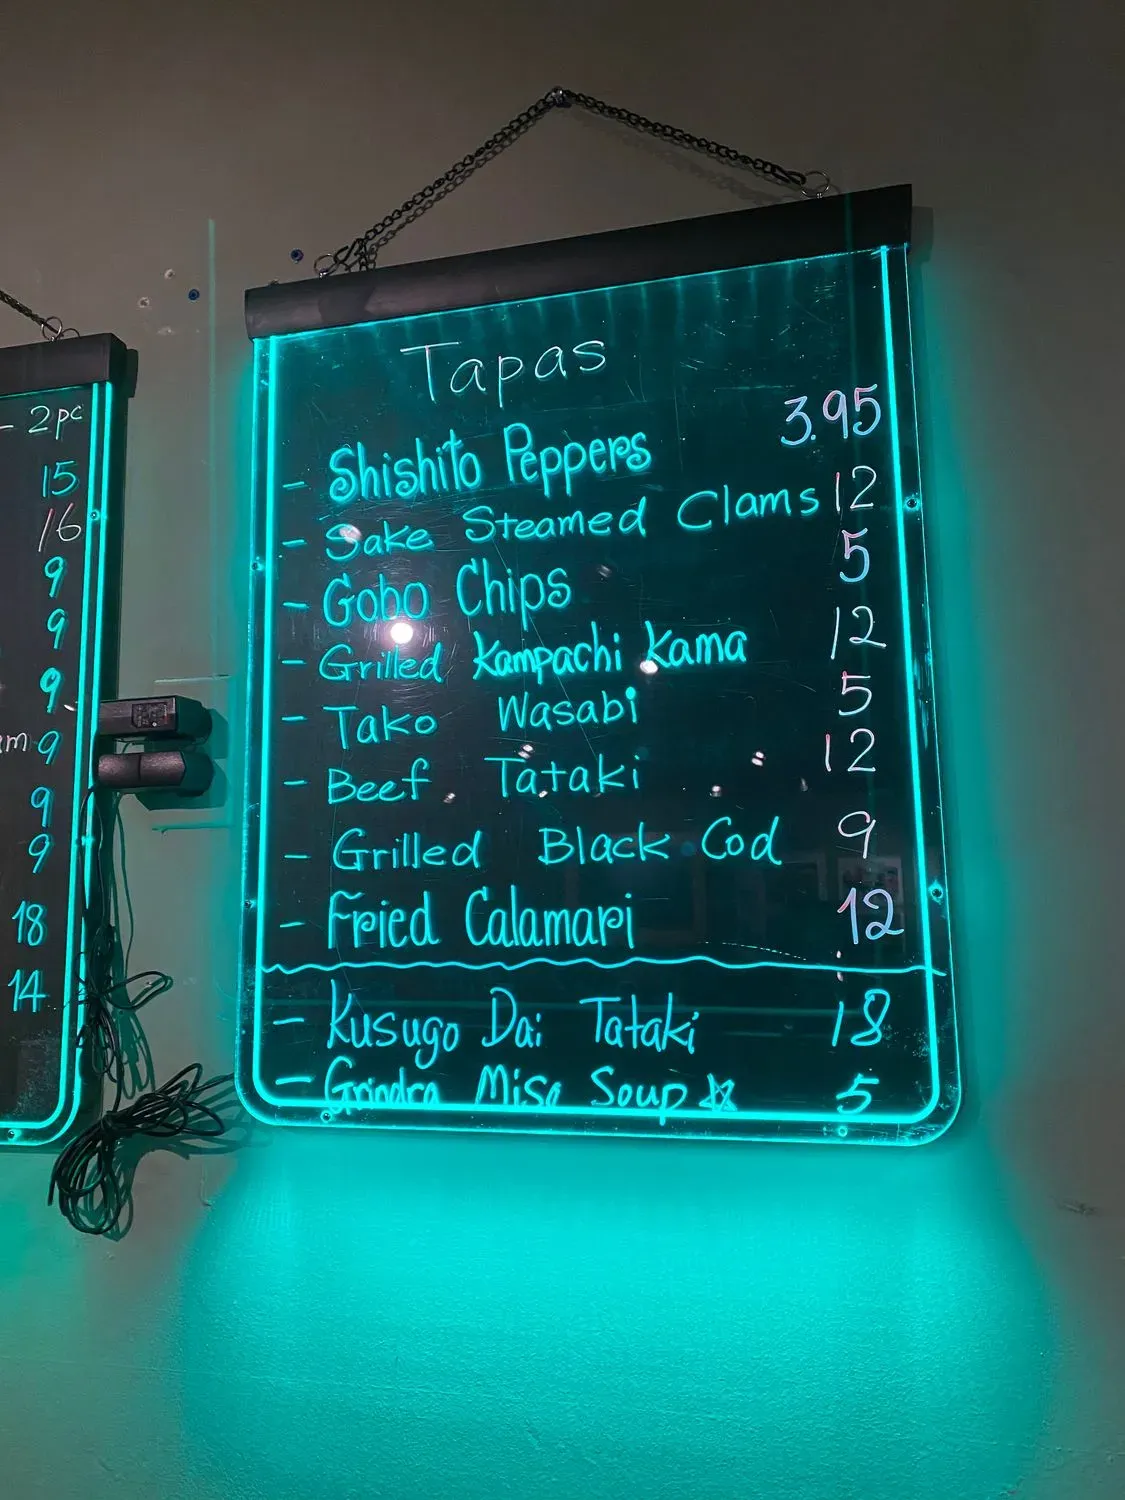 - 2pc
15
16
9
9
9
am 9
9
9
18
14
Tapas
- Shishito Peppers 3.95
- Sake Steamed Clams 12
- Gobo Chips 5
- Grilled Kampachi Kama 12
- Tako Wasabi 5
- Beef Tataki 12
- Grilled Black Cod 9
- Fried Calamari 12
- Kusugo Dai Tataki 18
- Grindra Miso Soup ☆ 5